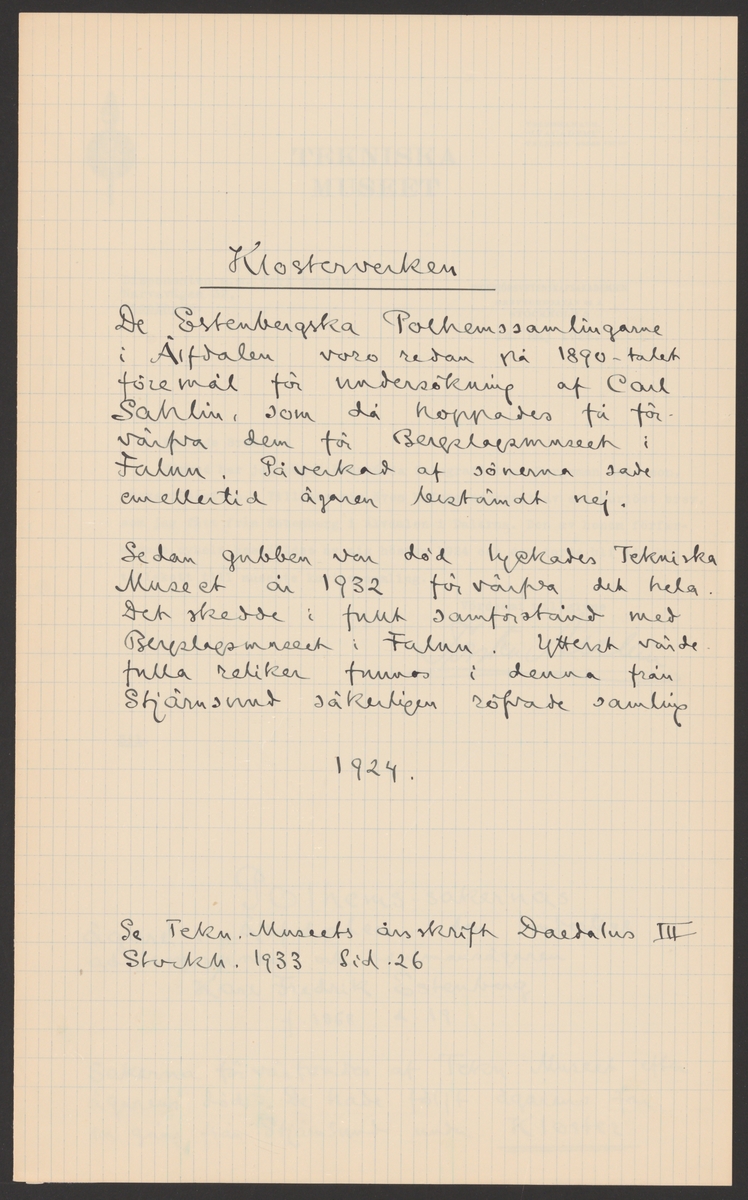 Klosterverken
De Estenbergska Polhemssamlingarne
i Älfdalen voro redan på 1890-talet
föremål för undersökning af Carl
Sahlin, som då hoppades få för-
värfva dem för Bergslagsmuseet i
Falun. Påverkad af sönerna sade
emellertid ägaren bestämdt nej.
Sedan gubben var död lyckades Tekniska
Museet år 1932 förvärfva det hela.
Det skedde i fullt samförstånd med
Bergslagsmuseet i Falun. Ytterst värde-
fulla reliker funnos i denna från
Stjärnsund säkerligen röfvade samling
1924.
Se Tekn. Museets årsskrift Daedalus III
Stockh. 1933 Sid. 26
TEKNISKA
MUSEET